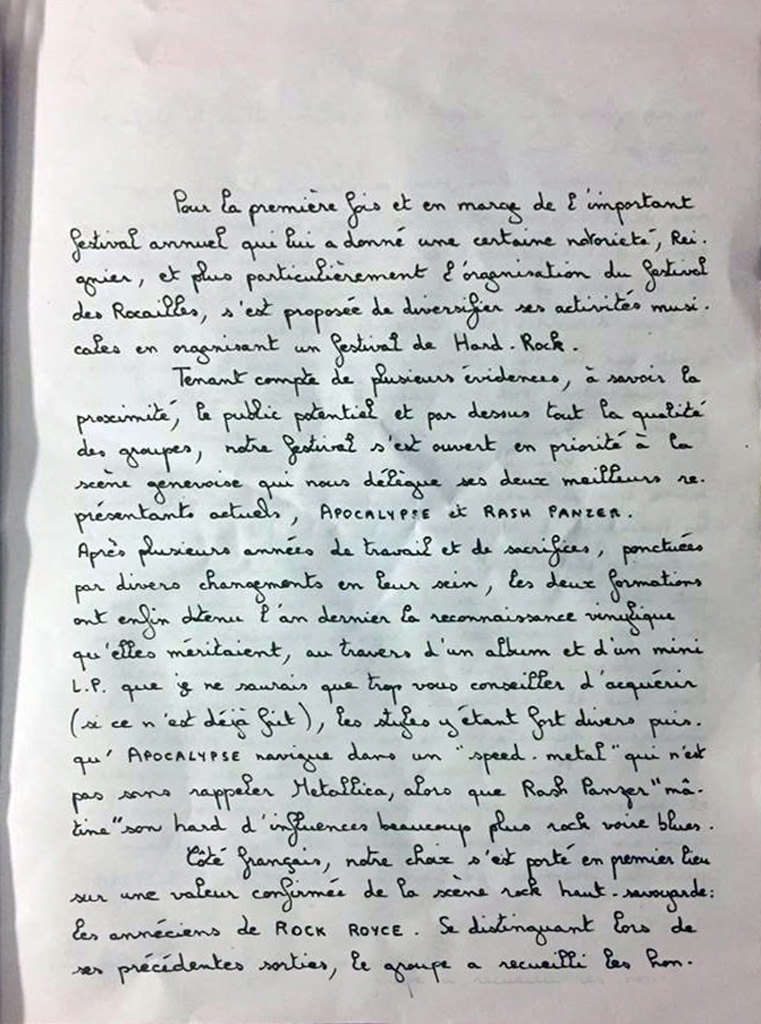 Pour la première fois et en marge de l'important
festival annuel qui lui a donné une certaine notorieté, Rei-
gnier, et plus particulièrement l'organisation du festival
des Rocailles, s'est proposée de diversifier ses activités musi-
cales en organisant un festival de Hard-Rock.
Tenant compte de plusieurs évidences, à savoir la
proximité, le public potentiel et par dessus tout la qualité
des groupes, notre festival s'est ouvert en priorité à la
scène genevoise qui nous délègue ses deux meilleurs re-
présentants actuels, APOCALYPSE et RASH PANZER.
Après plusieurs années de travail et de sacrifices, ponctuées
par divers changements en leur sein, les deux formations
ont enfin obtenu l'an dernier la reconnaissance vinylique
qu'elles méritaient, au travers d'un album et d'un mini
L.P. que je ne saurais que trop vous conseiller d'acquérir
(si ce n'est déjà fait), les styles y étant fort divers puis-
qu'APOCALYPSE navigue dans un "speed-metal" qui n'est
pas sans rappeler Metallica, alors que Rash Panzer "mâ-
tine" son hard d'influences beaucoup plus rock voire blues.
Côté français, notre choix s'est porté en premier lieu
sur une valeur confirmée de la scène rock haut-savoyarde:
les annéciens de ROCK ROYCE. Se distinguant lors de
ses précédentes sorties, le groupe a recueilli les hon-